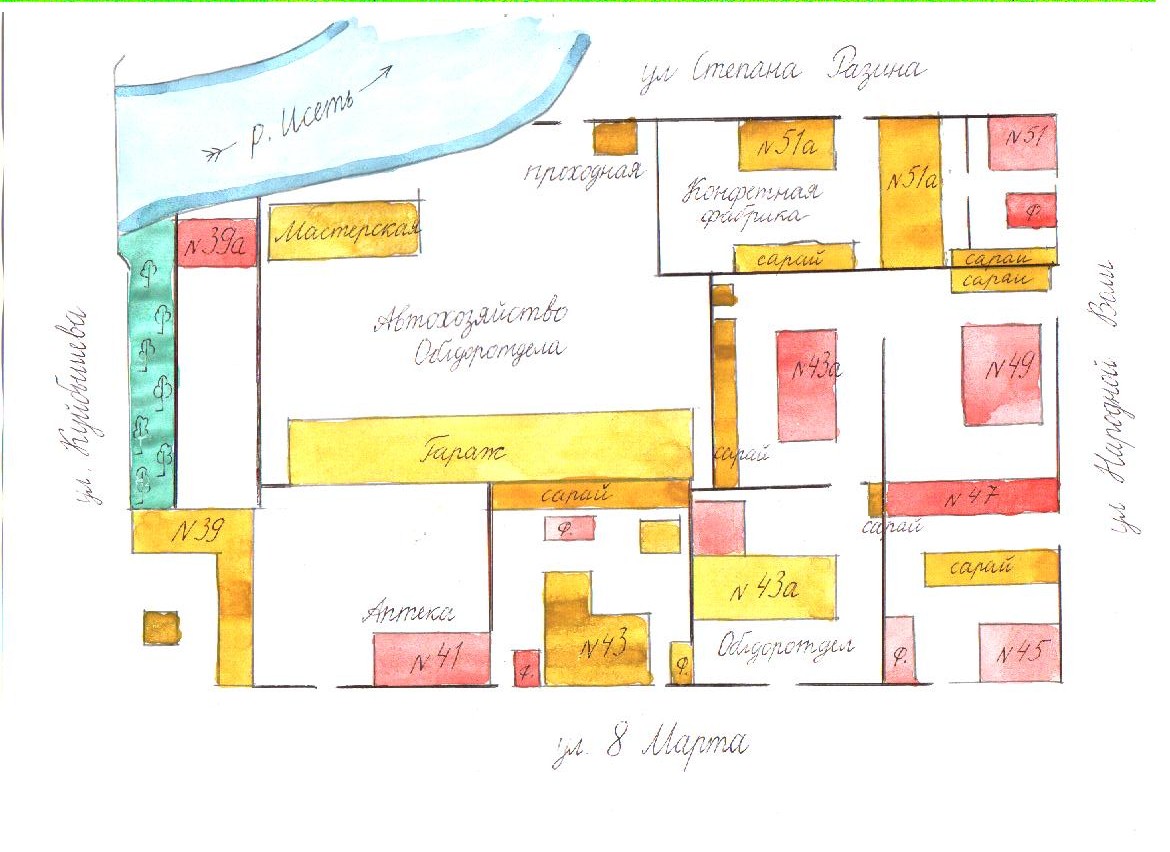 ул Степана Разина
р. Исеть
проходная
N51а
N51а
N51
Конфетная
фабрика
Ф.
N39а
Мастерская
сарай
сарай
сарай
Автохозяйство
Облдоротдела
N43а
N49
ул. Куйбышева
ул Народной Воли
Гараж
сарай
сарай
N47
сарай
N39
Ф.
сарай
N43а
Аптека
N41
N43
Облдоротдел
Ф.
Ф.
Ф.
N45
ул. 8 Марта